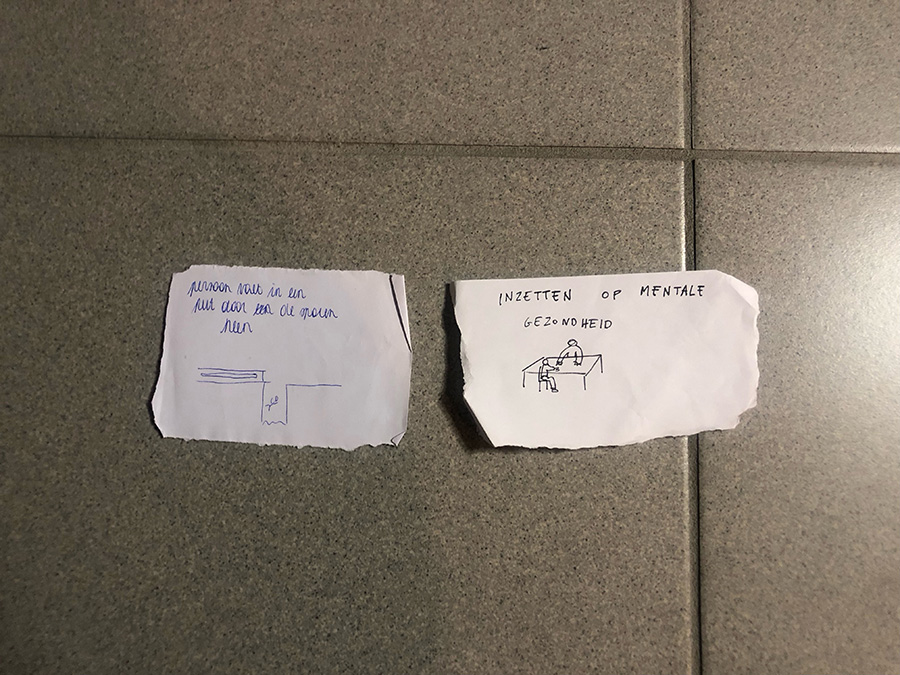 persoon valt in een
put door een de sporen
heen
INZETTEN OP MENTALE
GEZONDHEID